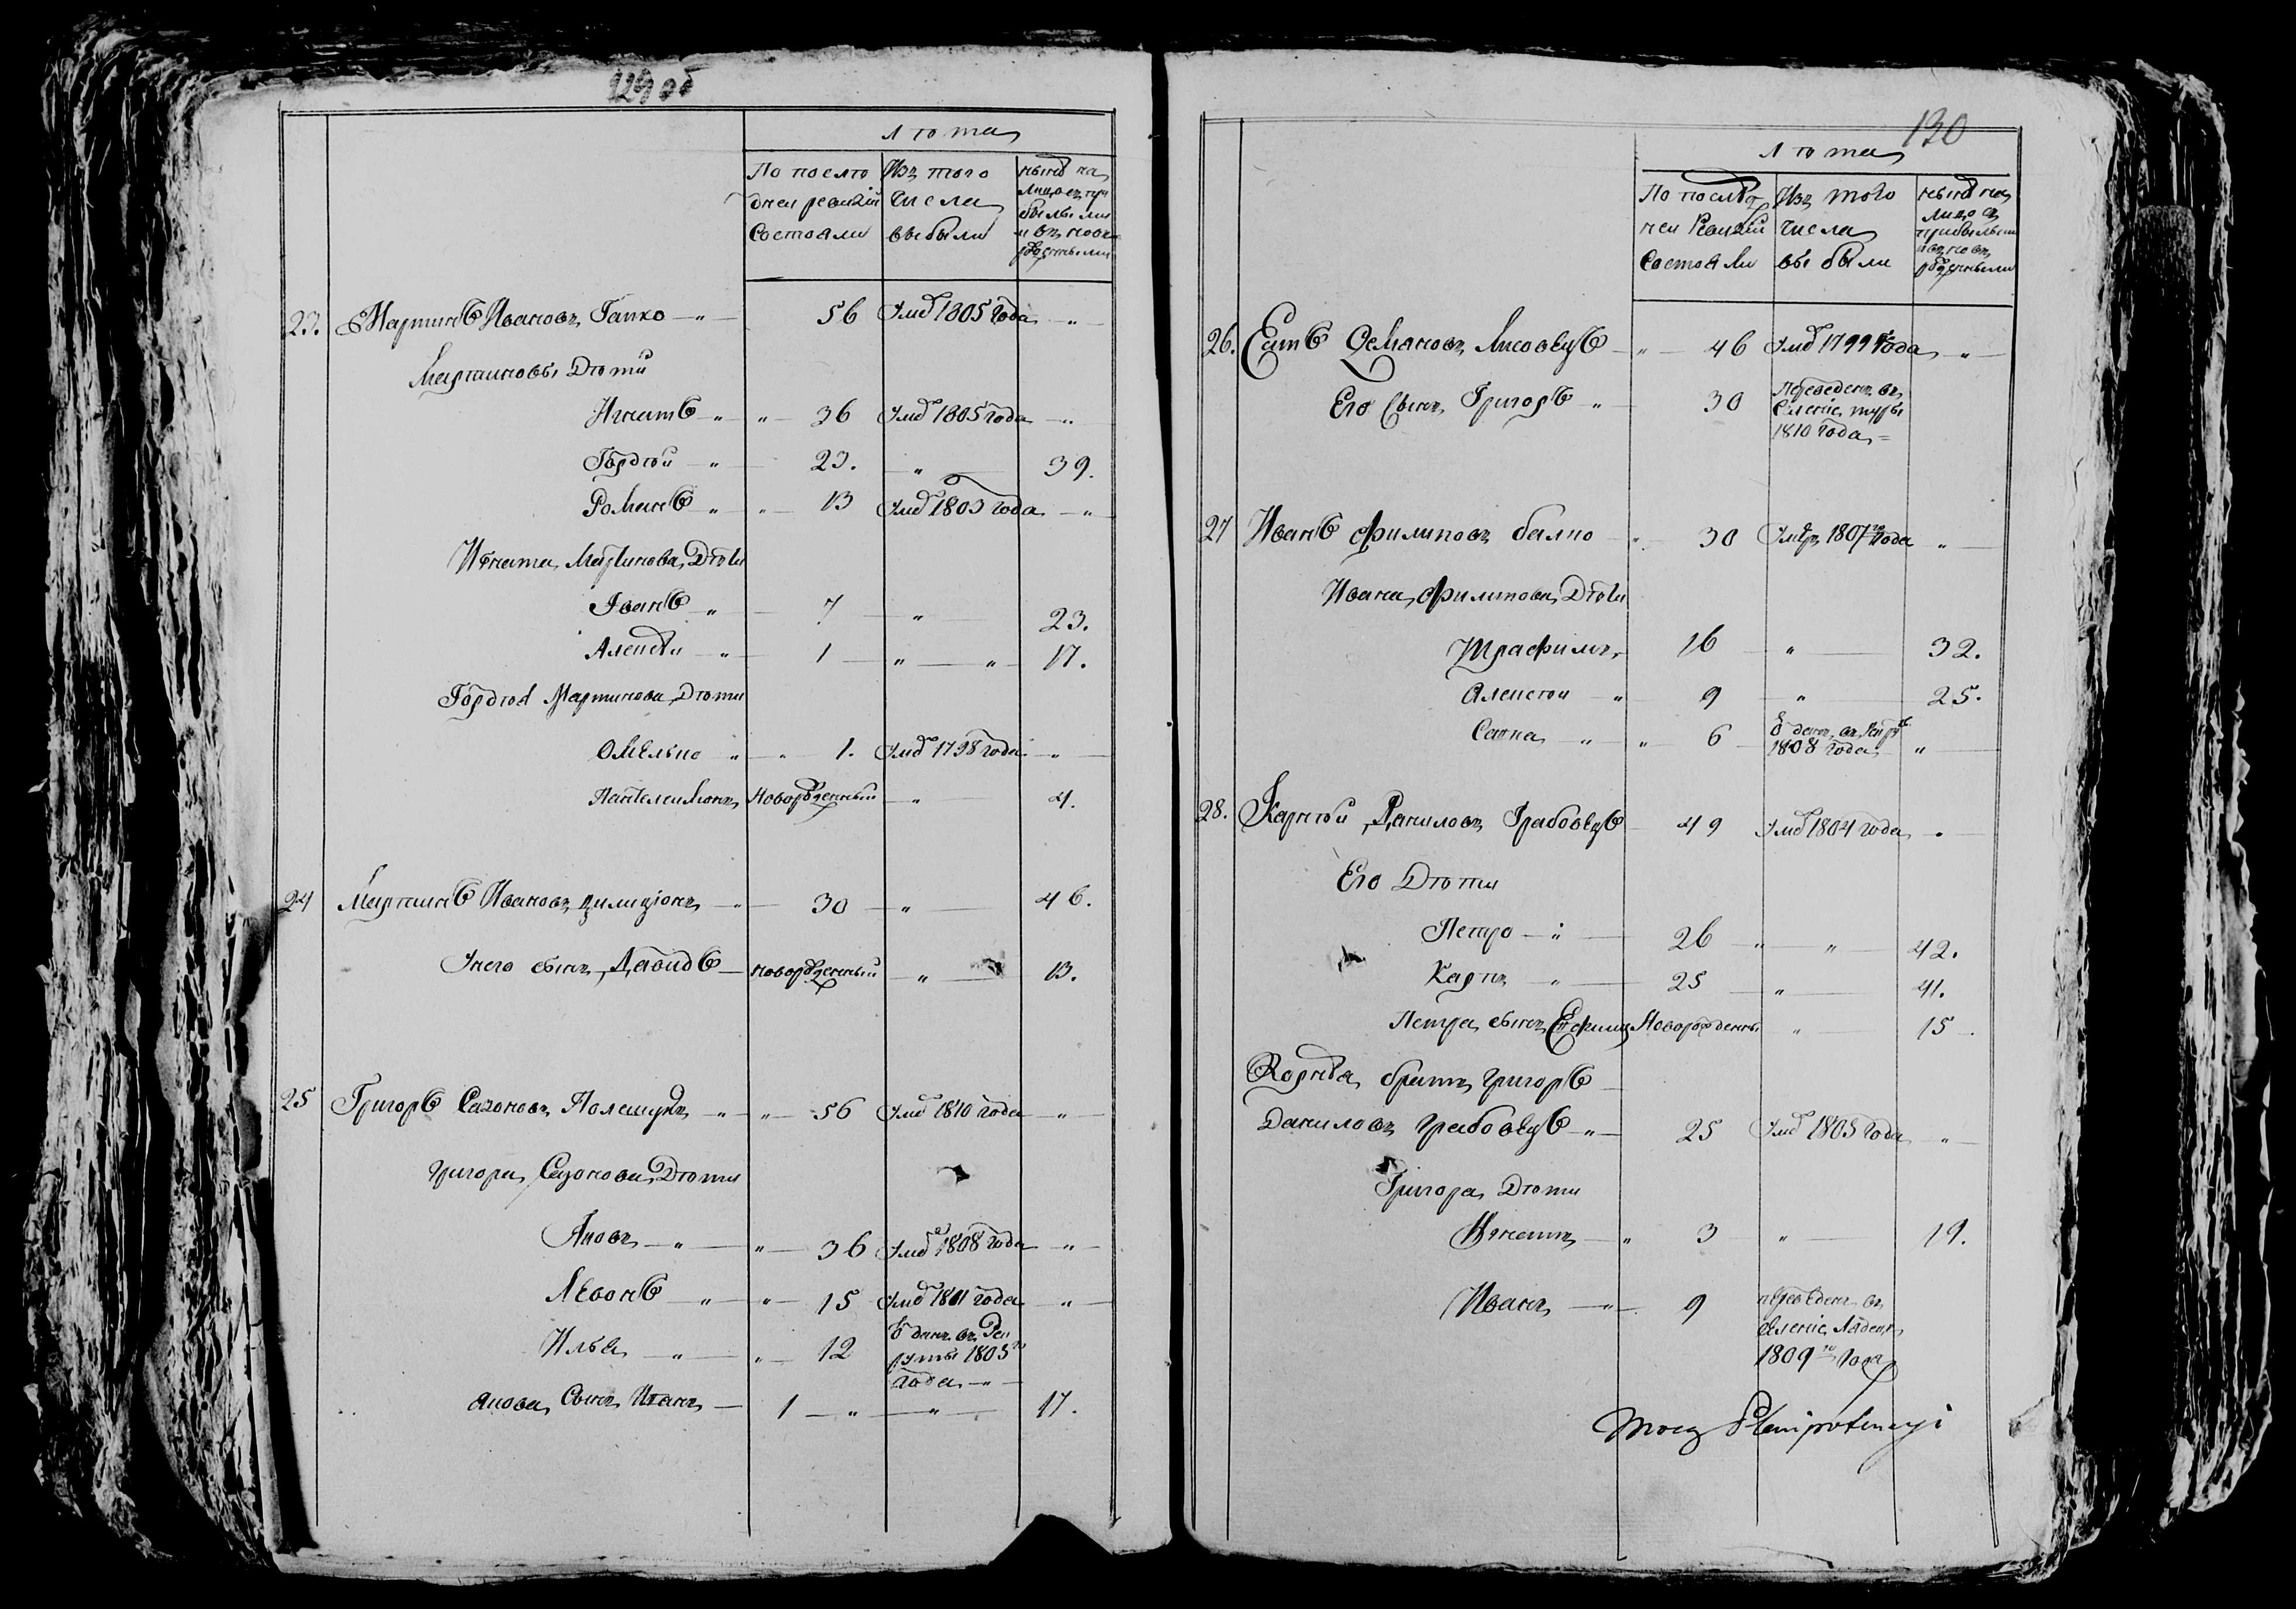 129 об
лѣта
По послѣ Изъ того нынѣ на
дней ревизіи числа лицо съ при
состояли выбыли былыми
и вновь
рожденными
23. Мартинъ Ивановъ Гапко — " — 56 Умѣ 1805 года — " —
Мартиновы Дѣти
Игнатъ — " — " — 36 Умѣ 1805 года — " —
Гордѣй — " — 23. — " — 39.
Романъ — " — " — 13 Умѣ 1803 года — " —
Игната Мартинова Дѣти
Іванъ — " — 7 — " — 23.
Алексѣй — " — 1 — " — " — 17.
Гордѣя Мартинова Дѣти
Омелько — " — " — 1. Умѣ 1798 года — " —
Пантелеимонъ Новорожденный — " — 4.
24 Мартинъ Ивановъ — " — 30 — " — 46.
У него сынъ Давидъ — новорожденный — " — 13.
25 Григоръ Сазоновъ Полещукъ — " — " — 56 Умѣ 1810 года — " —
Григора Сазонова Дѣти
Яковъ — " — " — 36 Умѣ 1808 года — " —
Левонъ — " — " — 15 Умѣ 1801 года — " —
Илья — " — " — 12 Отданъ въ Рек
руты 1803го
года — " —
Якова Сынъ Иванъ — 1 — " — " — 17.
130
лѣта
По послѣд Изъ того нынѣ на
ней Ревизіи числа лицо съ
состояли выбыли прибылыми
и вновь
рожденными
26. Демяновъ Лисовецъ — " — 46 Умѣ 1799 года — " —
Его Сынъ Григоръ — " — 30 Переведенъ въ
Селеніе Туры
1810 года =
27 Иванъ Филиповъ Балко — " — 30 Умеръ 1807го года "
Ивана Филипова Дѣти
Трафимъ — 16 — " — 32.
Алексѣй — " — 9 — " — 25.
Савка — " — " — 6 — Отданъ въ Рекру
1808 года — "
28. Карнѣй Даниловъ Грабовецъ — 49 Умѣ 1804 года — " —
Его Дѣти
Петро — " — 26 — " — " — 42.
Карпъ — " — 25 — " — 41.
Петра сынъ Ефимъ Новорожденны " 15
Корнѣя братъ Григоръ —
Даниловъ Грабовецъ — " — 25 Умѣ 1805 года — " —
Григора Дѣти
Игнатъ — " — 3 — " — 19.
Иванъ — " — 9 переведенъ въ
селеніе
1809го года